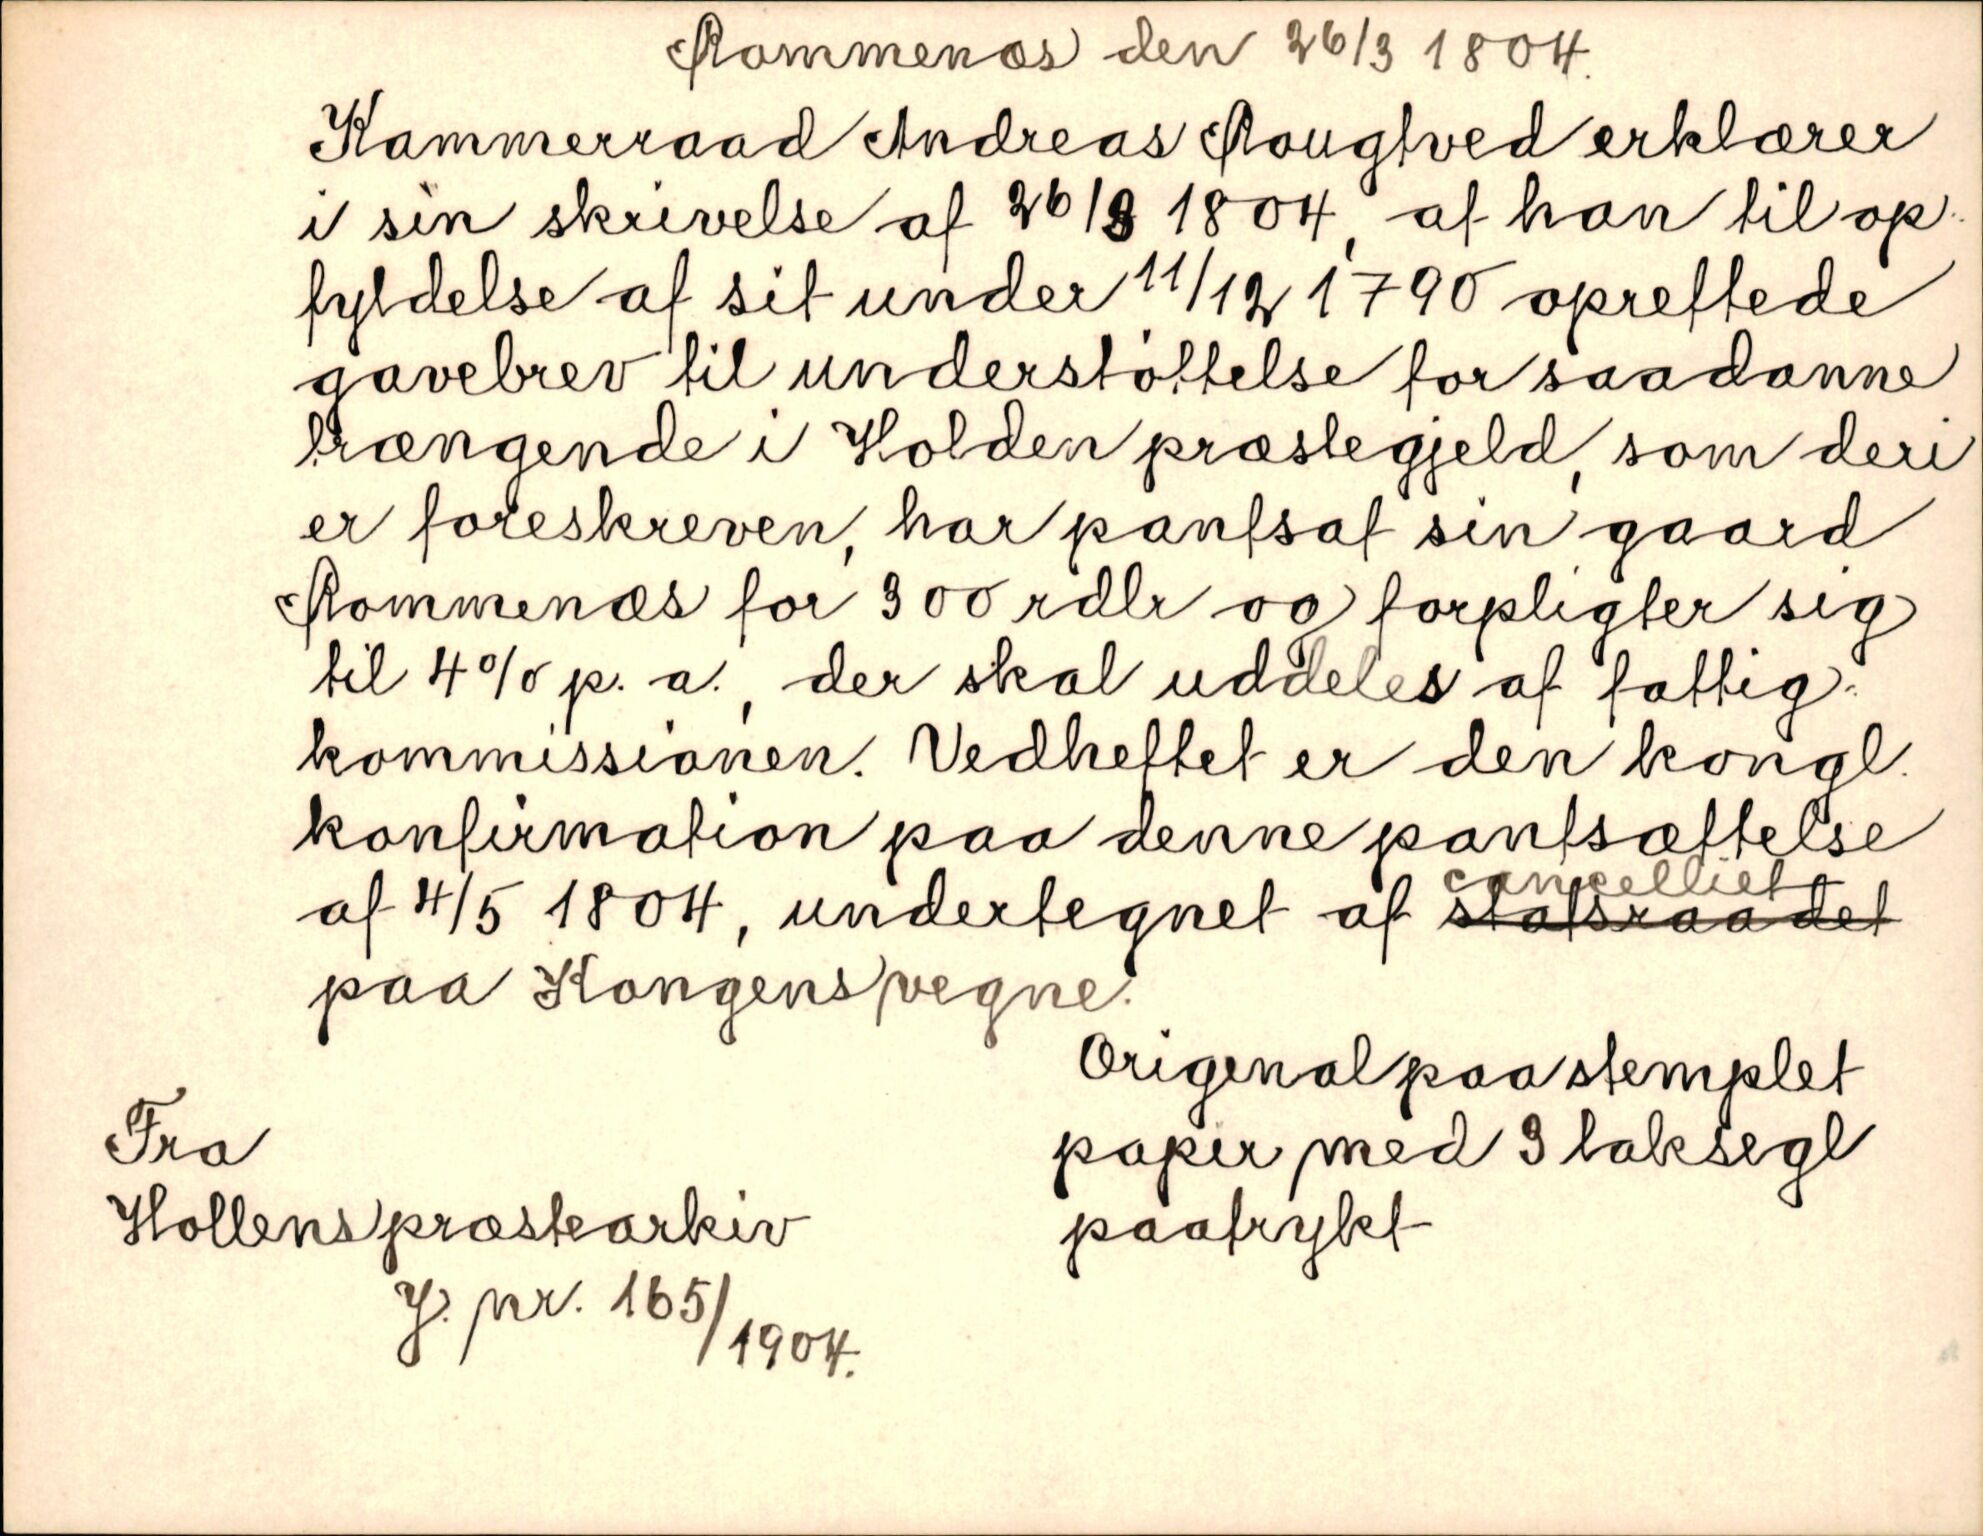 Rommenæs den 26/3 1804.
Kammerraad Andreas Rougtved erklærer
i sin skrivelse af 26/3 1804, at han til op-
fyldelse af sit under 11/12 1790 oprettede
gavebrev til understöttelse for saadanne
trængende i Holden præstegjeld, som deri
er foreskreven, har pantsat sin gaard
Rommenæs for 300 rdlr og forpligter sig
til 4% p. a., der skal uddeles af fattig-
kommissionen. Vedheftet er den kongl.
konfirmation paa denne pantsættelse
af 4/5 1804, undertegnet af statsraadet cancelliet
paa Kongens vegne.
Origenal paa stemplet
papir med 3 laksegl
paatrykt
Fra
Hollens præstearkiv
J. nr. 165/1904.